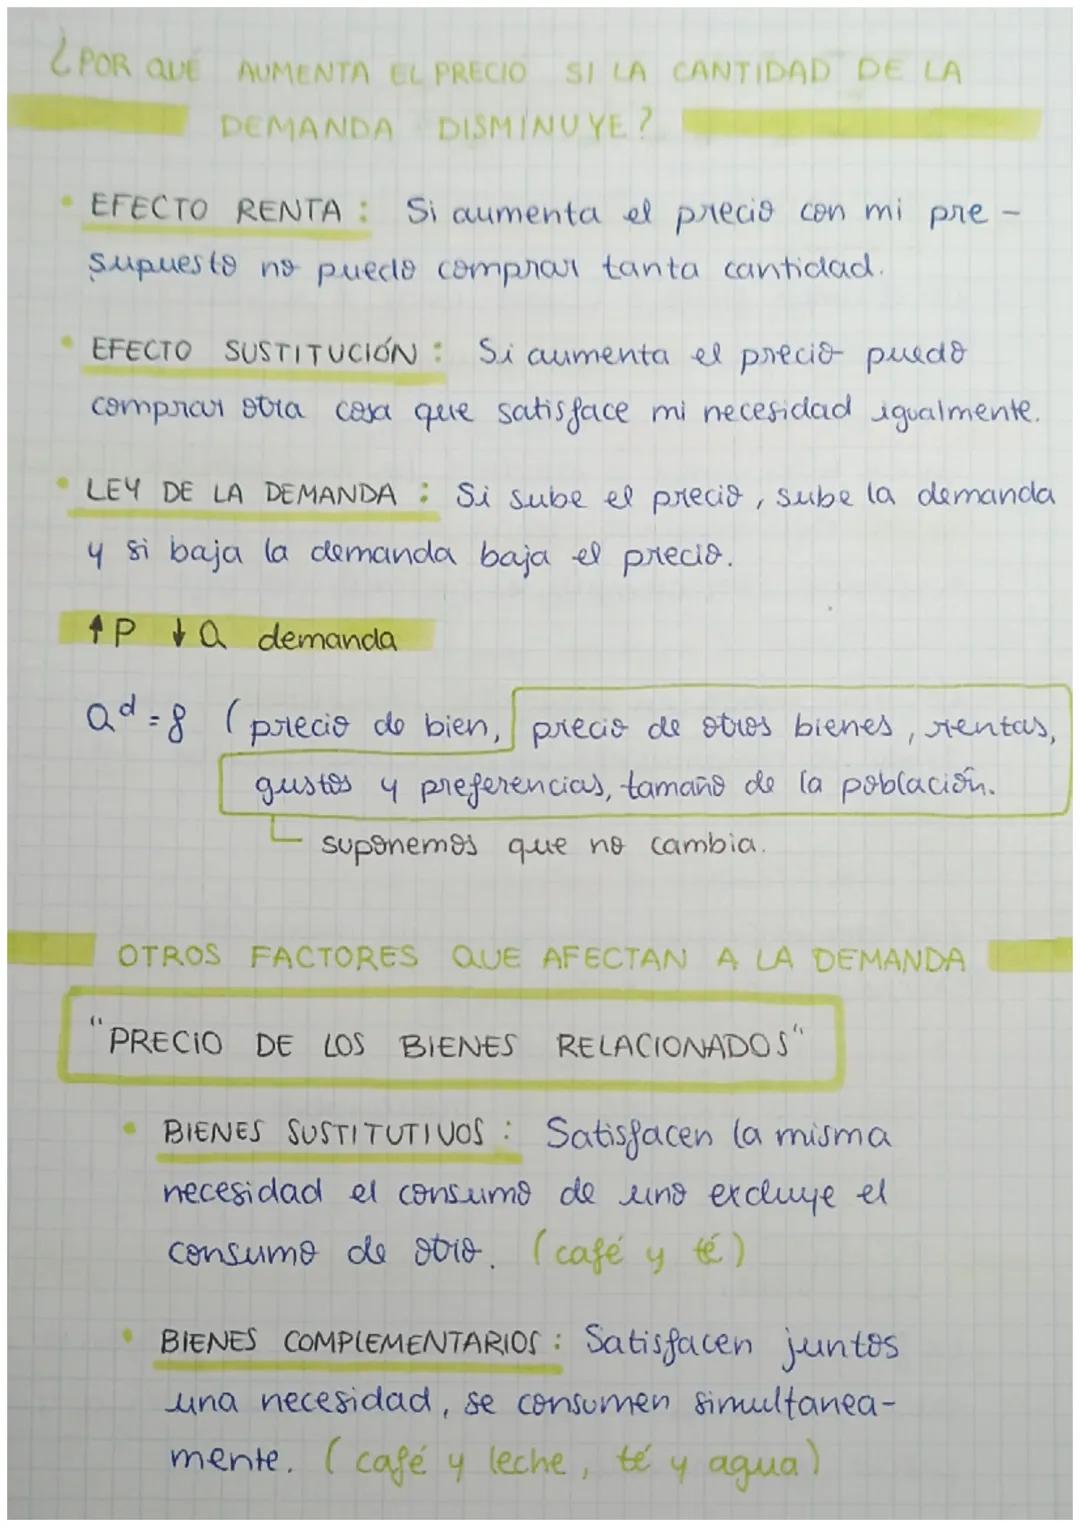 ¿POR QUÉ AUMENTA EL PRECIO SI LA CANTIDAD DE LA
DEMANDA DISMINUYE?
• EFECTO RENTA: Si aumenta el precio con mi pre-
supuesto no puedo comprar tanta cantidad.
• EFECTO SUSTITUCIÓN: Si aumenta el precio puedo
comprar otra cosa que satisface mi necesidad igualmente.
• LEY DE LA DEMANDA: Si sube el precio, sube la demanda
y si baja la demanda baja el precio.
↑P ↓Q demanda
Qd = f (precio de bien, precio de otros bienes, rentas,
gustos y preferencias, tamaño de la población.
suponemos que no cambia.
OTROS FACTORES QUE AFECTAN A LA DEMANDA
"PRECIO DE LOS BIENES RELACIONADOS"
• BIENES SUSTITUTIVOS: Satisfacen la misma
necesidad el consumo de uno excluye el
consumo de otro. (café y té)
• BIENES COMPLEMENTARIOS: Satisfacen juntos
una necesidad, se consumen simultanea-
mente. (café y leche, té y agua)